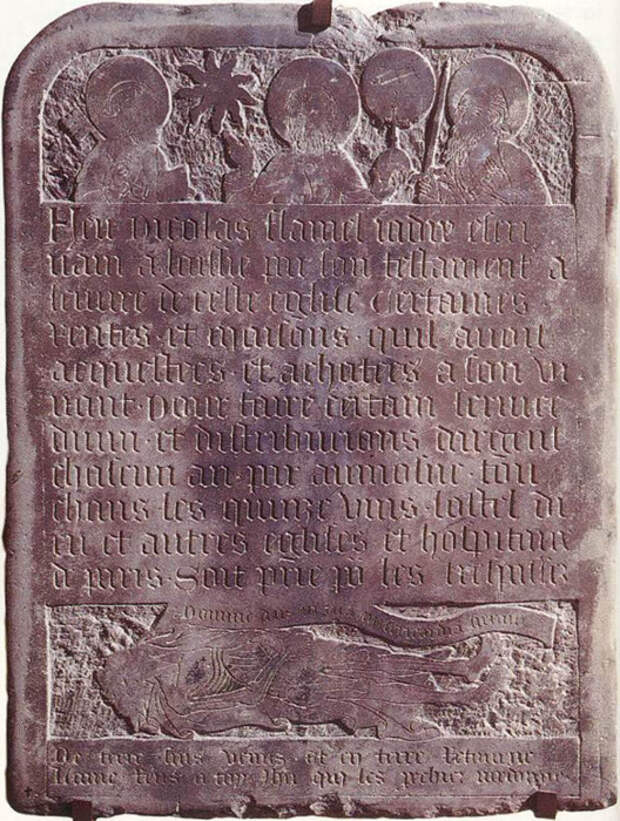 Feu nicolas flamel iadis escri
uain a laissie par son testament a
leuure de ceste eglise certaines
rentes et maisons quil auoit
acquestees et achatees a son vi
uant pour faire certain seruice
diuin et distribucions dargent
chascun an par aumosne tou
chans les quinze vins lostel di
eu et autres eglises et hospitaux
de paris Soit prie po les trespassez
Domine deus in tua misericordia speraui
De terre suis venus et en terre Retourne
Lame Rens a toy Jhu qui les pechiez pardonne